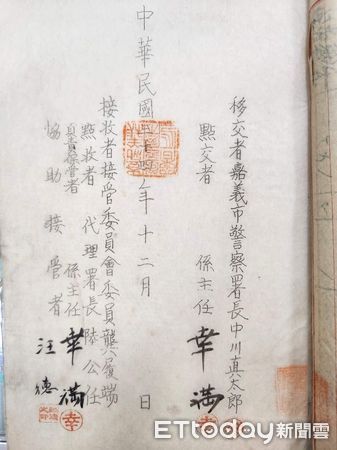 移交者嘉義市警察署長中川真太郎
點交者 係主任 幸滿
中華民國三十四年十二月 日
接收者接管委員會委員龔履端
點收者 代理署長陸公任
負責保管者 係主任 幸滿
協助接管者 汪德
幸
ETtoday新聞雲